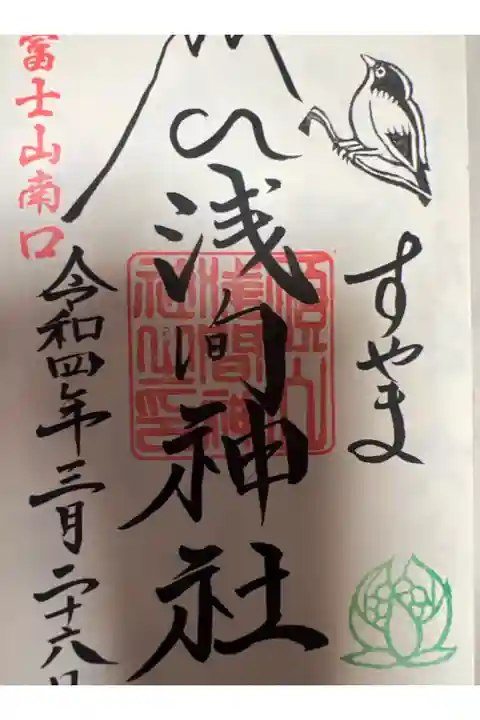 すやま
浅間神社
須山
浅間神
社之印
富士山南口
令和四年三月二十六日